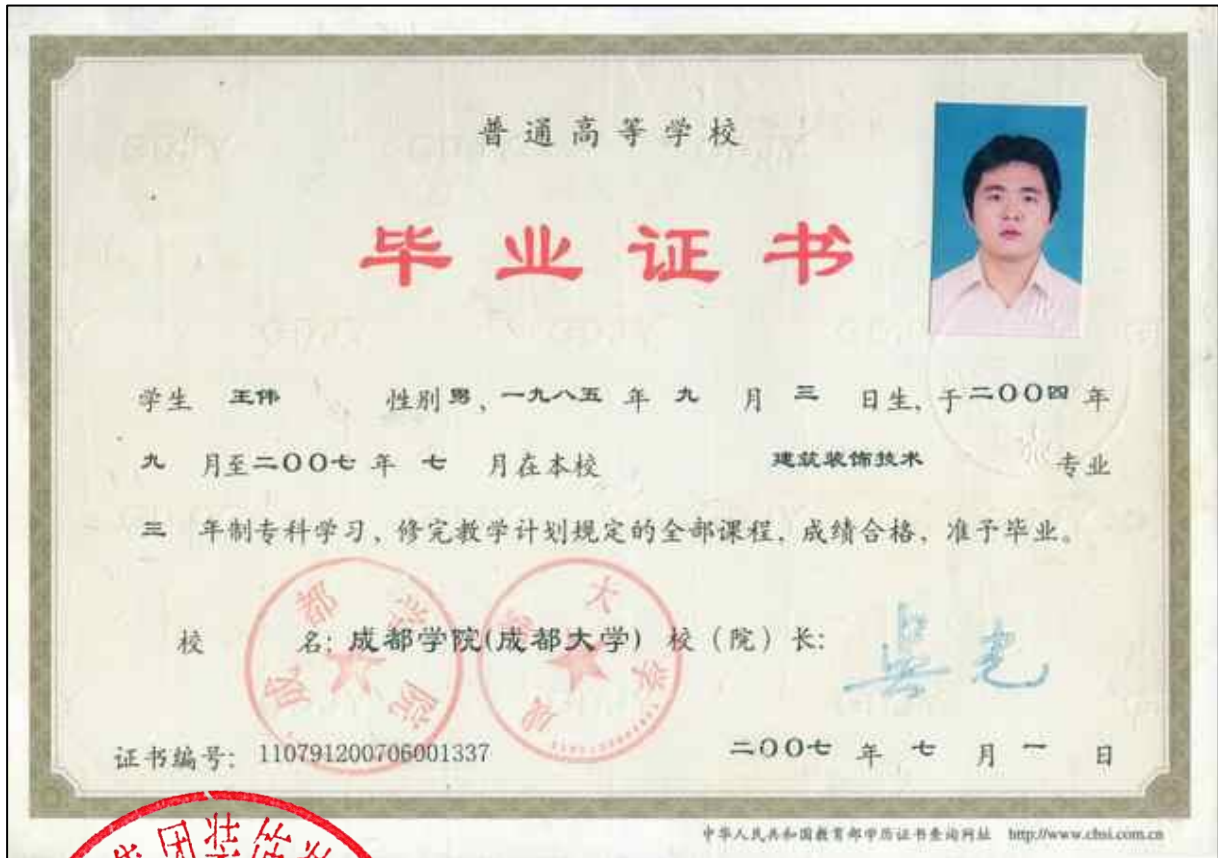 普通高等学校
毕业证书
学生 王伟 性别男、一九八五 年 九 月 三 日生, 于二〇〇四 年
九 月至二〇〇七 年 七 月在本校 建筑装饰技术 专业
三 年制专科学习、修完教学计划规定的全部课程, 成绩合格, 准予毕业。
成都学院
成都大学
校 名: 成都学院(成都大学) 校(院)长:
证书编号: 110791200706001337 二〇〇七 年 七 月 一 日
中华人民共和国教育部学历证书查询网址 http://www.chsi.com.cn